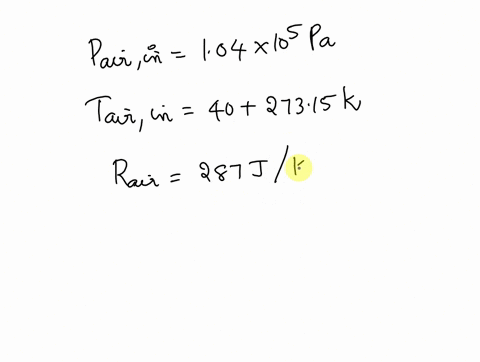 Pair, in = 1.04 × 10⁵ Pa
Tair, in = 40 + 273.15 k
Rair = 287 J /